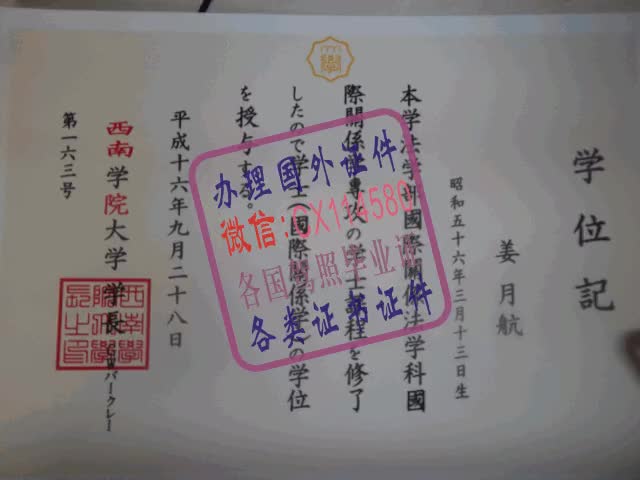 学位記
姜月航
昭和五十六年三月十三日生
本学法学部國際關係法学科國
際關係法専攻の学士課程を修了
したので学士(國際關係学)の学位
を授与する。
平成十六年九月二十八日
西南学院大学 学長
バークレー
第一六三号
办理国外证件
微信:CX114580
各国驾照毕业证
各类证书证件